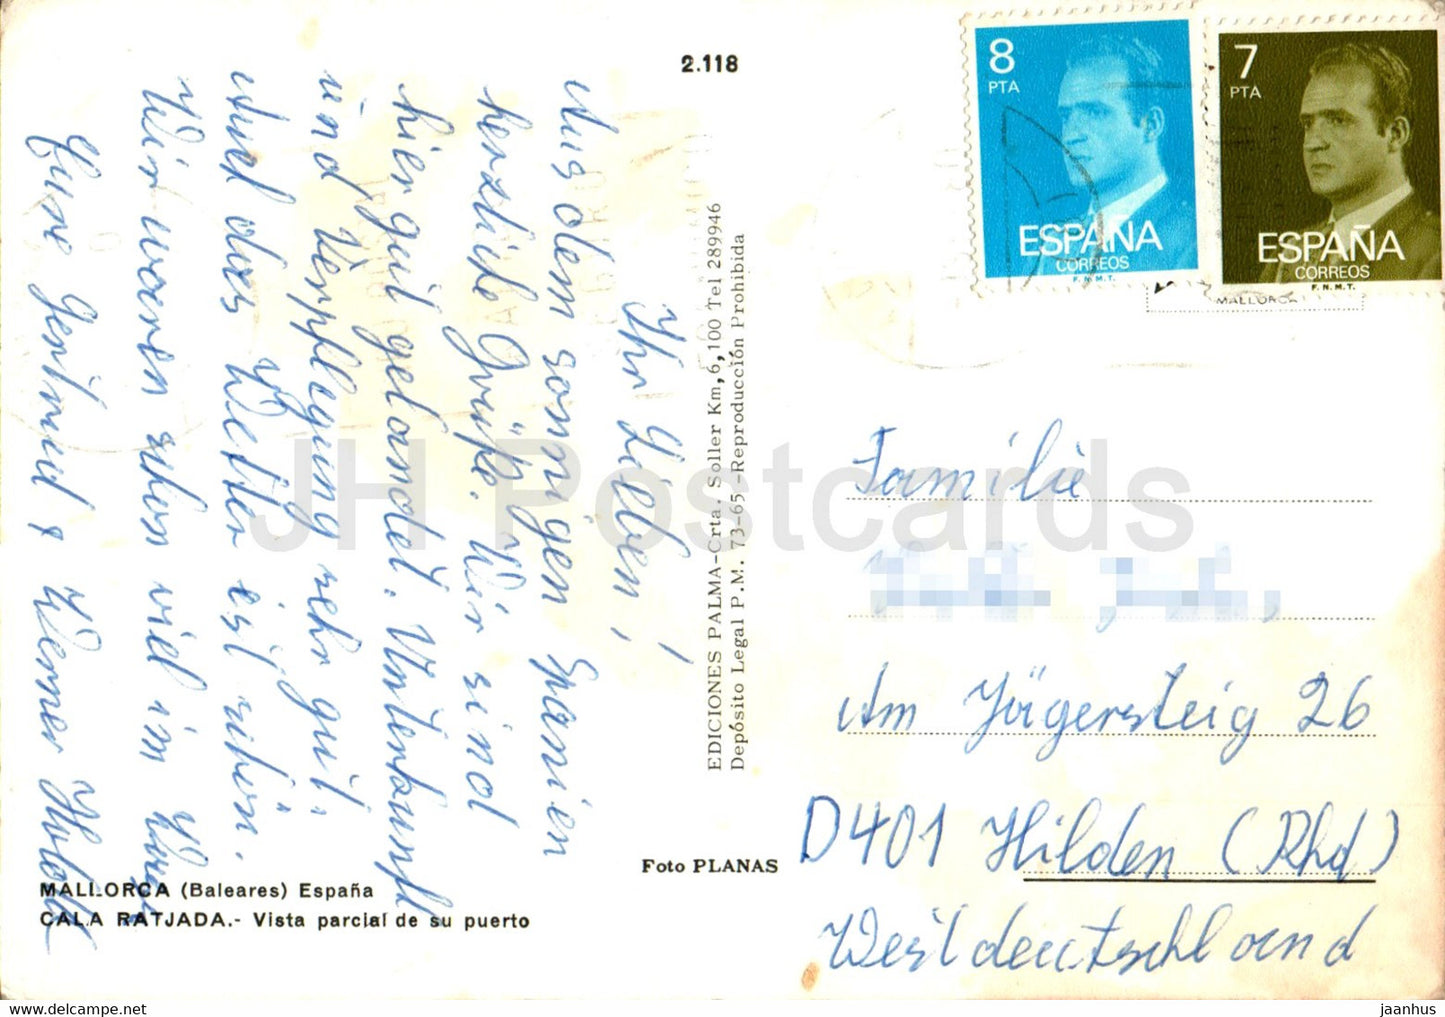 2.118
8
PTA
ESPAÑA
CORREOS
F.N.M.T.
7
PTA
ESPAÑA
CORREOS
F.N.M.T.
MALLORCA
Ihr Lieben!
Aus dem sonnigen Spanien
herzliche Grüße. Wir sind
hier gut gelandet. Unterkunft
und Verpflegung sehr gut.
Auch das Wetter ist schön.
Wir waren schon viel im
Eure Gertrud & Werner
EDICIONES PALMA-Crta. Soller Km, 6,100 Tel 289946
Depósito Legal P.M. 73-65 -Reproducción Prohibida
Foto PLANAS
MALLORCA (Baleares) España
CALA RATJADA.- Vista parcial de su puerto
Familie
Am Jägersteig 26
D401 Hilden (Rhd)
Westdeutschland
JH Postcards
www.hippostcard.com/store/jh-postcards
jaanhus